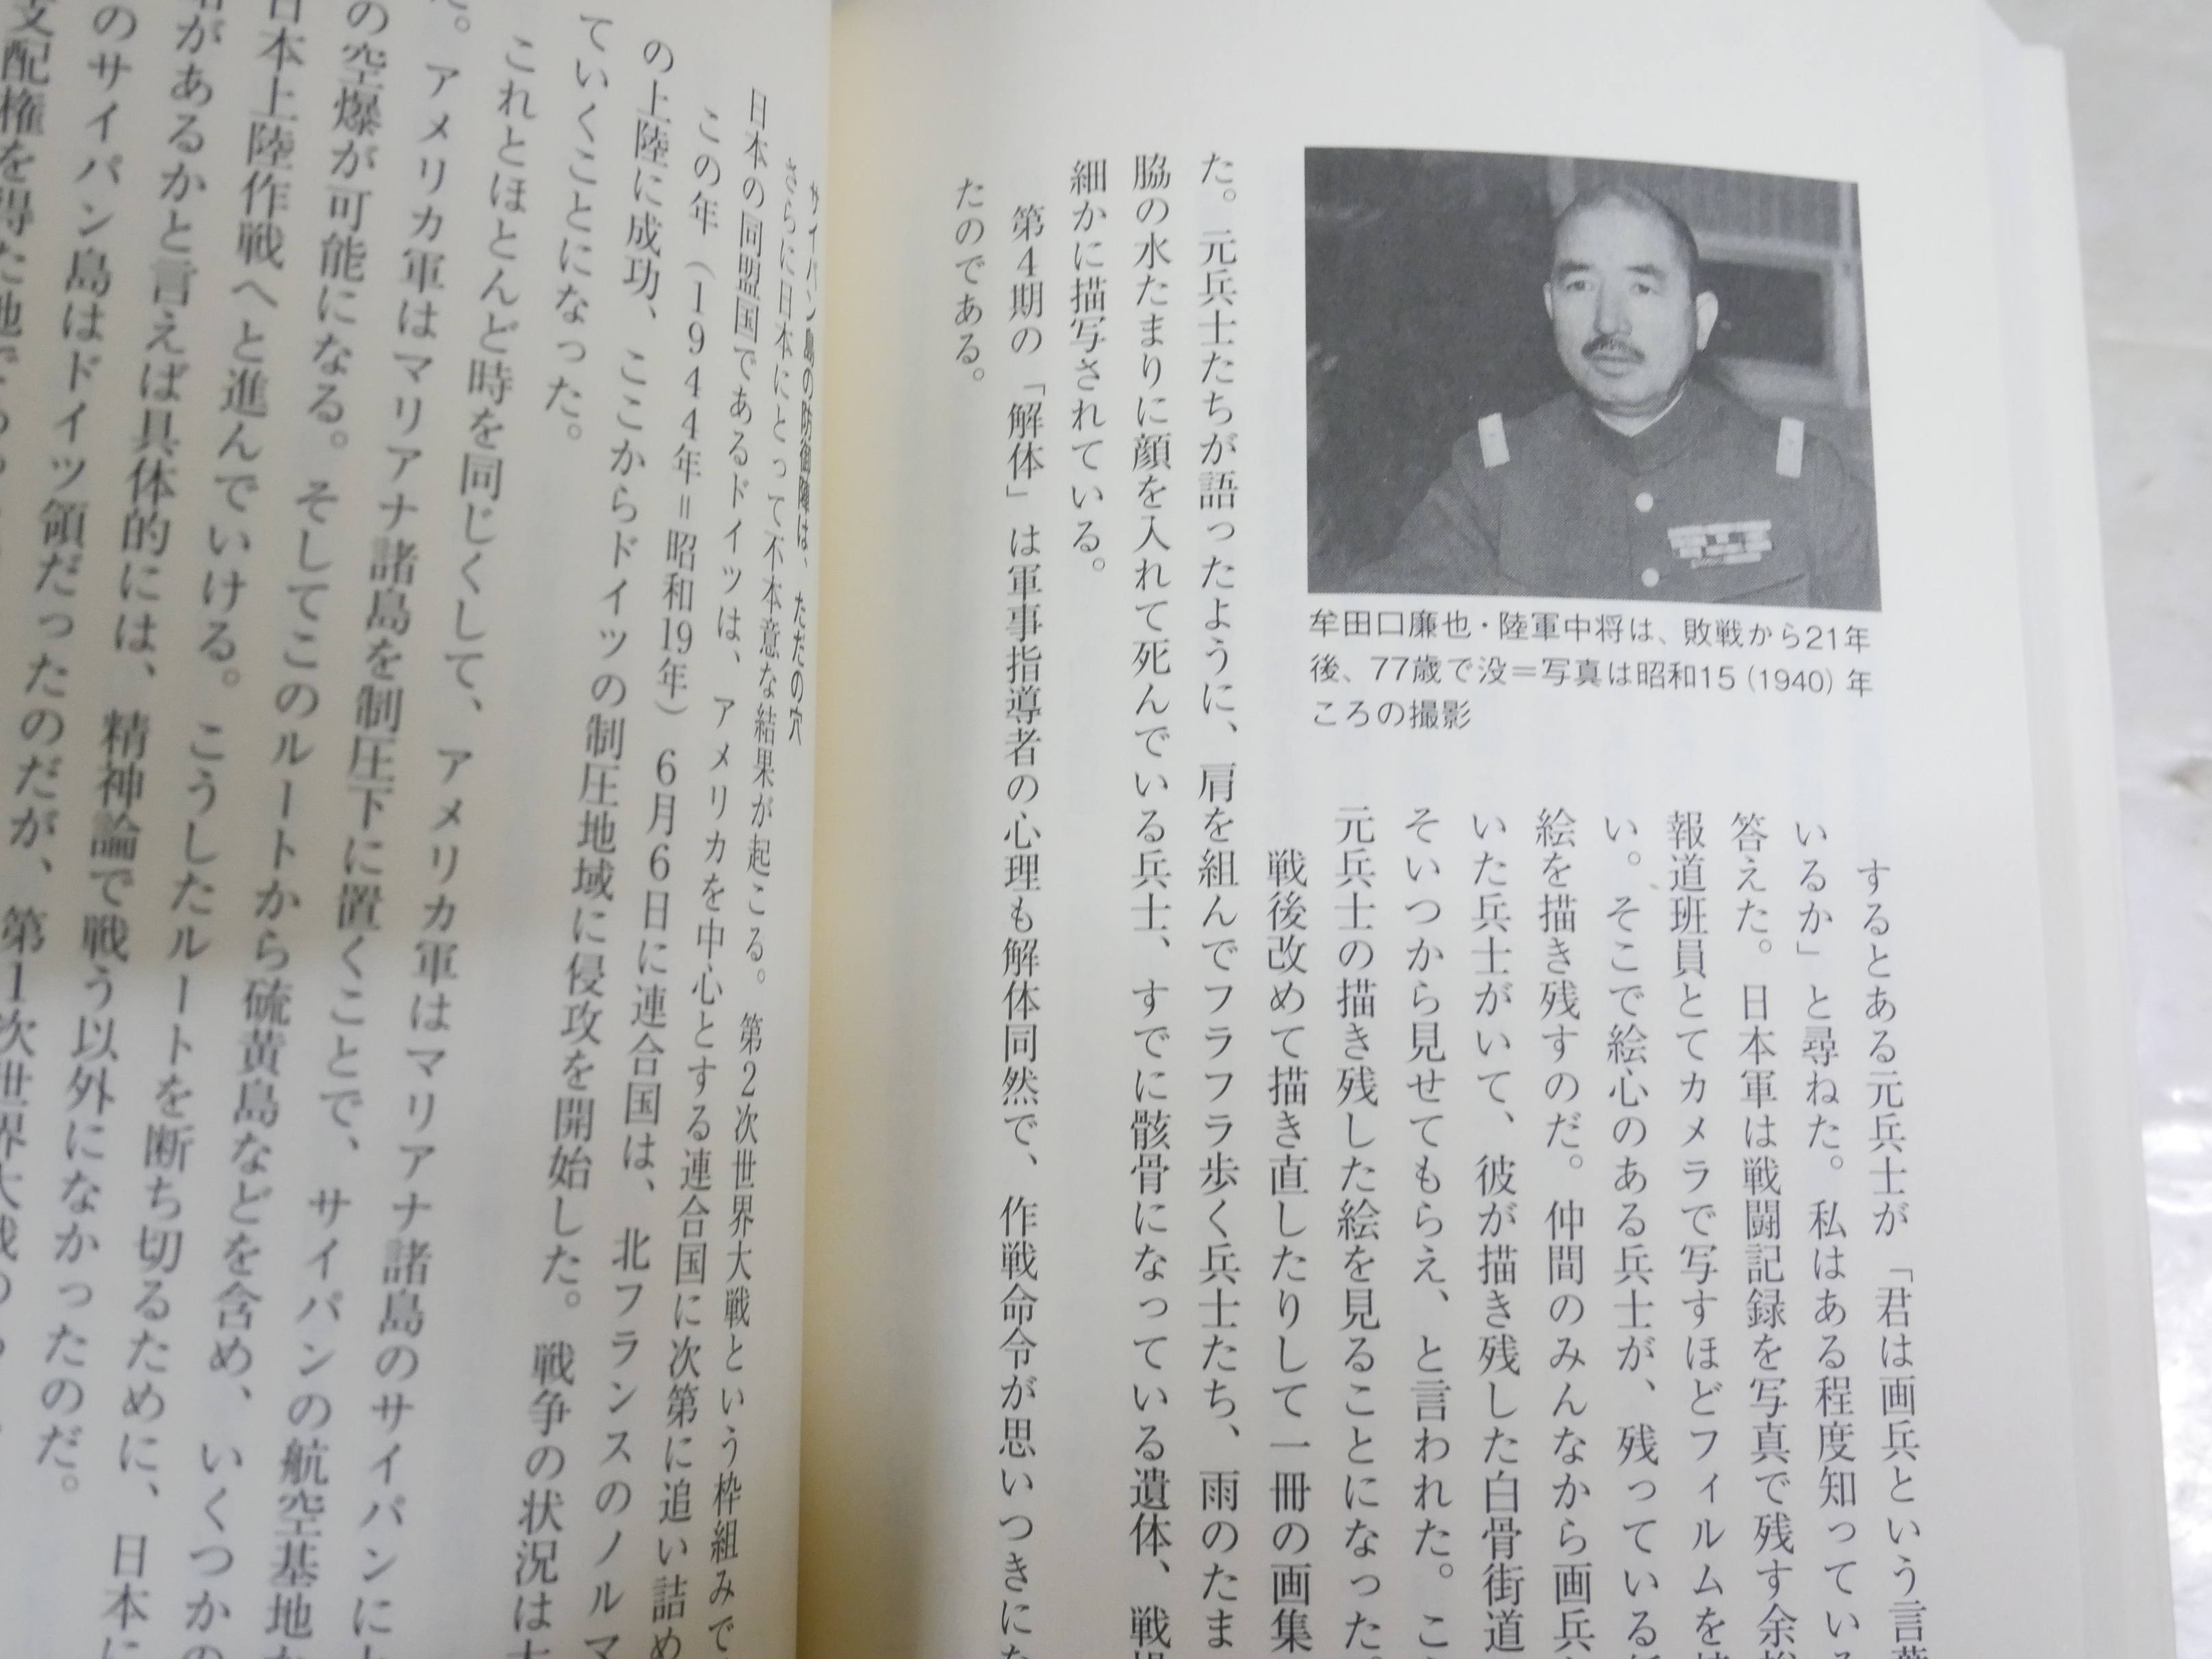 牟田口廉也・陸軍中将は、敗戦から21年
後、77歳で没＝写真は昭和15（1940）年
ころの撮影
するとある元兵士が「君は画兵という言葉
いるか」と尋ねた。私はある程度知ってい
答えた。日本軍は戦闘記録を写真で残す余
報道班員とてカメラで写すほどフィルムを
い。そこで絵心のある兵士が、残っている
絵を描き残すのだ。仲間のみんなから画兵
いた兵士がいて、彼が描き残した白骨街道
そいつから見せてもらえ、と言われた。こ
元兵士の描き残した絵を見ることになった。
戦後改めて描き直したりして一冊の画集
た。元兵士たちが語ったように、肩を組んでフラフラ歩く兵士たち、雨のたま
脇の水たまりに顔を入れて死んでいる兵士、すでに骸骨になっている遺体、戦
細かに描写されている。
第4期の「解体」は軍事指導者の心理も解体同然で、作戦命令が思いつきにな
たのである。
サイパン島の防御陣は、ただの穴
さらに日本にとって不本意な結果が起こる。第2次世界大戦という枠組みで
日本の同盟国であるドイツは、アメリカを中心とする連合国に次第に追い詰め
この年（1944年＝昭和19年）6月6日に連合国は、北フランスのノルマ
の上陸に成功、ここからドイツの制圧地域に侵攻を開始した。戦争の状況は
ていくことになった。
これとほとんど時を同じくして、アメリカ軍はマリアナ諸島のサイパンに
た。アメリカ軍はマリアナ諸島を制圧下に置くことで、サイパンの航空基地
の空爆が可能になる。そしてこのルートから硫黄島などを含め、いくつかの
日本上陸作戦へと進んでいける。こうしたルートを断ち切るために、日本に
があるかと言えば具体的には、精神論で戦う以外になかったのだ。
のサイパン島はドイツ領だったのだが、第1次世界大戦の
支配権を得た地で